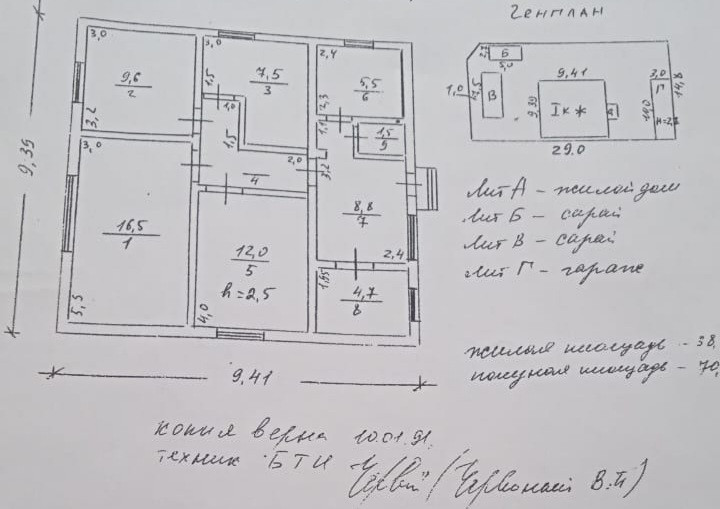 генплан
3,0
9,6
2
3,2
3,0
1,5
7,5
3
1,0
1,5
2,0
4
2,4
5,5
6
2,3
1,1
1,5
9
3,2
8,8
7
2,4
3,0
16,5
1
5,5
12,0
5
h=2,5
4,0
1,95
4,7
8
9,39
9,41
Б
5,0
1,0
В
9,41
9,39
Iкж
3,0
Г
14,8
29.0
Лит А - жилой дом
Лит Б - сарай
Лит В - сарай
Лит Г - гараж
жилая площадь - 38,
полезная площадь - 70,
копия верна 10.01.91.
техник БТИ